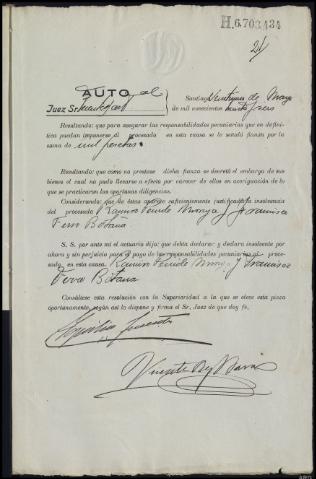 H.6.703.434
21
AUTO
Juez Sr.
Santiago Veintiuno de Mayo
de mil novecientos treinta y seis
Resultando: que para asegurar las responsabilidades pecuniarias que en defini-
tiva puedan imponerse al procesado en esta causa se le señaló fianza por la
suma de mil pesetas
Resultando: que como no prestase dicha fianza se decretó el embargo de sus
bienes el cual no pudo llevarse a efecto por carecer de ellos en averiguación de lo que
se practicaron las oportunas diligencias.
Considerando: que de éstas aparece suficientemente justificada la insolvencia
del procesado Ramiro y Francisco
Botana
S. S. por ante mí el actuario dijo: que debía declarar y declara insolvente por
ahora y sin perjuicio para el pago de las responsabilidades pecuniarias al proce-
sado en esta causa Ramiro y Francisco
Botana
Consúltese esta resolución con la Superioridad a la que se eleve esta pieza
oportunamente, según así lo dispone y firma el Sr. Juez de que doy fe.
Vicente Rey